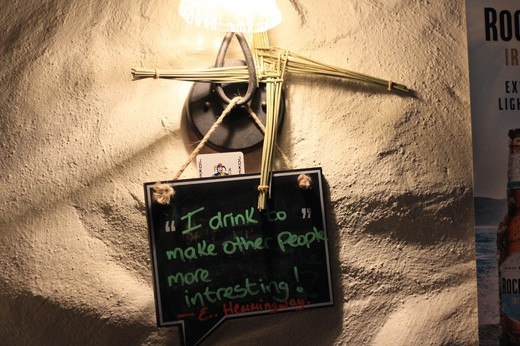 “ I drink to ”
make other People
more
intresting!
- E. Hemmingway.
ROC
IR
EX
LIGH
ROCK